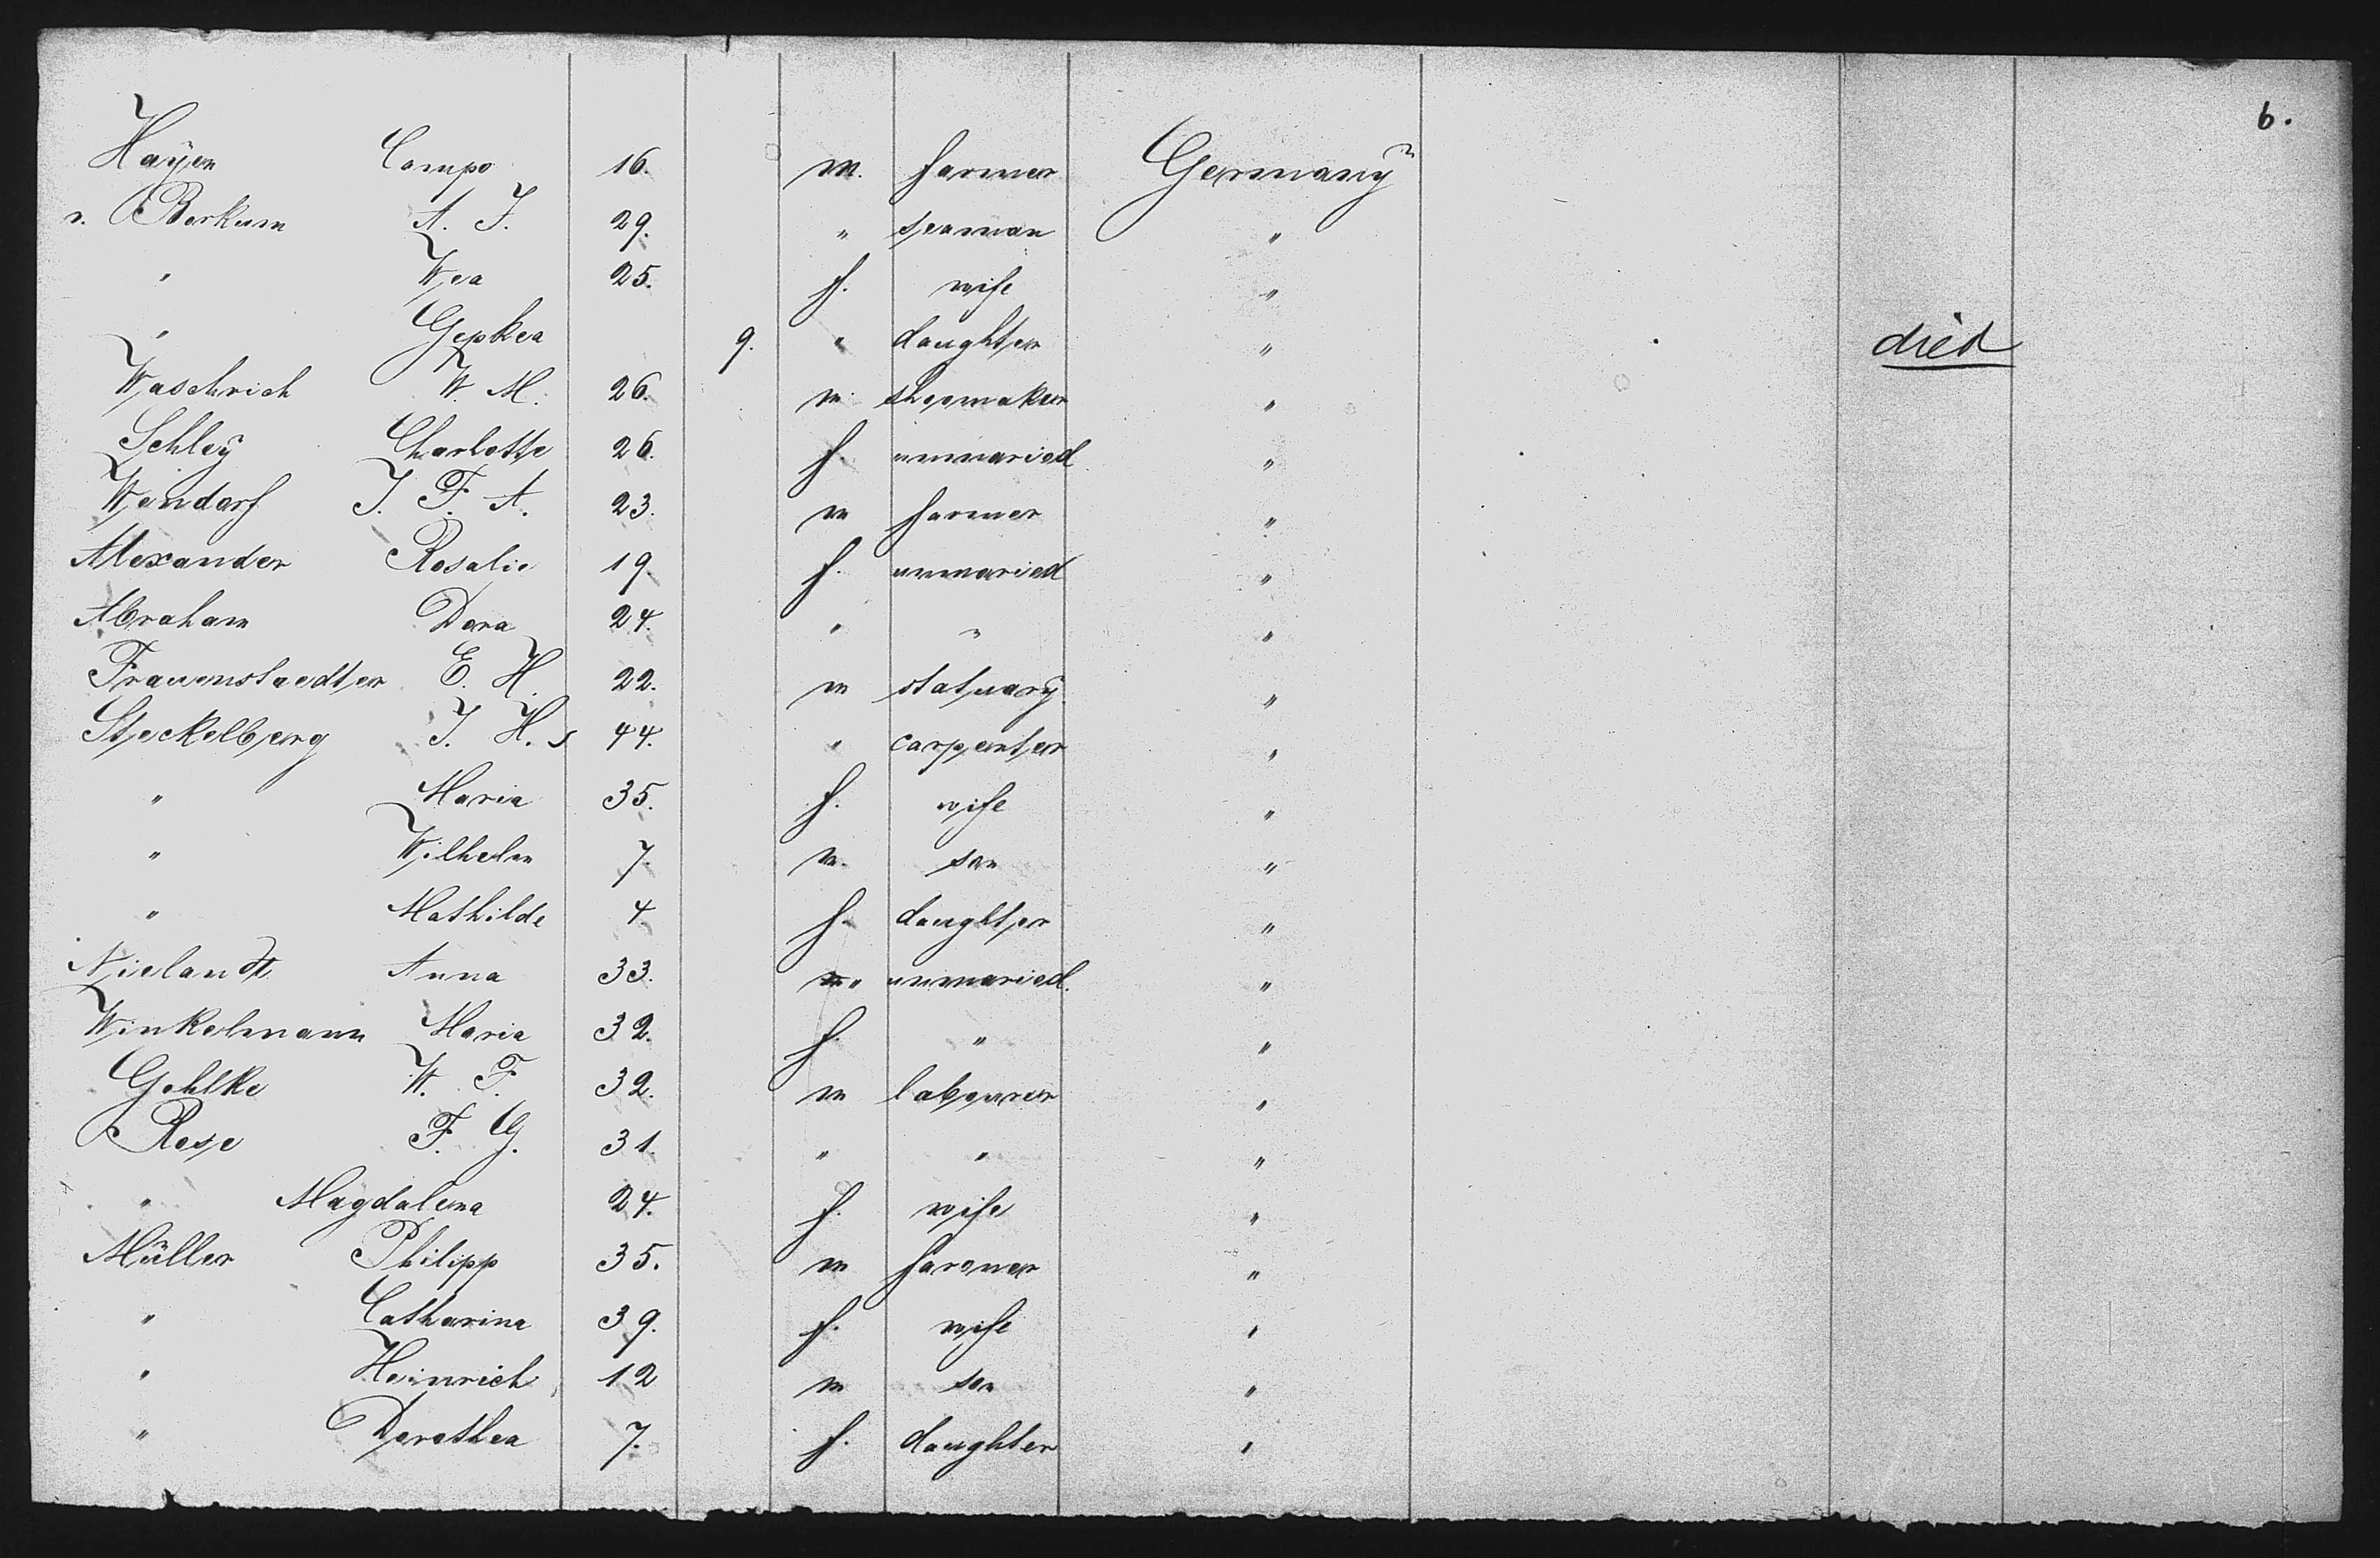 6.
Haÿen Campo 16. m. farmer Germany
v. Borkum A. J. 29. " seaman "
" Wea 25. f. wife "
" Gepkea 9. " daughter " died
Waschrich W. M. 26. m shoemaker "
Schleÿ Charlotte 26. f. unmaried "
Wendorf J. F. A. 23. m farmer "
Alexander Rosalie 19. f. unmaried "
Abraham Dora 24. " " "
Frauenstaedter E. H. 22. m statuarÿ "
Steckelberg J. H. s 44. " carpenter "
" Maria 35. f. wife "
" Wilhelm 7. m. son "
" Mathilde 4. f. daughter "
Nielandt Anna 33. " unmaried. "
Winkelmann Maria 32. f. " "
Gehlke W. F. 32. m labourer "
Rose F. G. 31. " " "
" Magdalena 24. f. wife "
Müller Philipp 35. m farmer "
" Catharina 39. f. wife "
" Heinrich 12 m son "
" Dorothea 7. f. daughter "